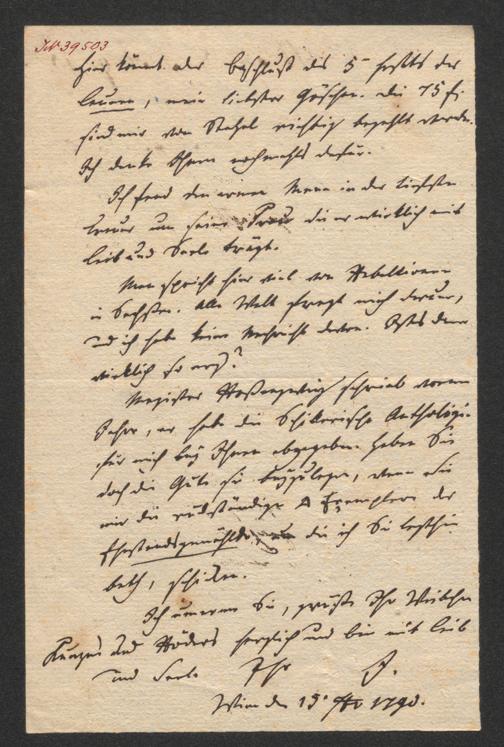 IN 39503
Hier kömt der Beschluß des 5 Hefts der
Leuven, mein liebster Göschen. Die 75 f.
sind mir von Stahel richtig bezahlt worden.
Ich danke Ihnen nochmahls dafür.
Ich fand den armen Mann in der tiefsten
Trauer um seine Frau die er wirklich mit
Leib und Seele trägt.
Man spricht hier viel von Rebellionen
in Sachsen. Alle Welt fragt mich darum,
und ich habe keine Nachricht davon. Ists denn
wirklich so arg?
Magister schrieb voriges
Jahr, er habe die Schillerische Anthologie
für mich bey Ihnen abgegeben. Haben Sie
doch die Güte sie beyzulegen, wenn Sie
mir die rückständigen Exemplare der
Ehestandsgemählde, um die ich Sie letzthin
bath, schicken.
Ich umarme Sie, grüße Ihr Weibchen
Kunzes und Röders herzlich und bin mit Leib
und Seele Ihr J.
Wien den 15 1790.